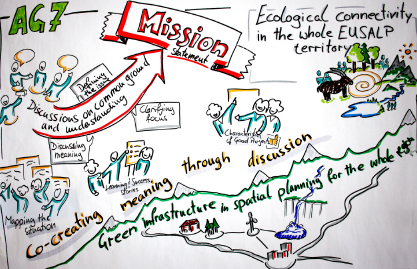 AG7
Mission
Statement
Ecological connectivity
in the whole EUSALP
territory
Defining the
Discussions on common ground
and understanding
Clarifying
focus
Discussing
meaning
Characteristics
of Good Projects
Learning Success
stories
Mapping the
situation
Co-creating meaning through discussion
Green infrastructure in spatial planning for the whole